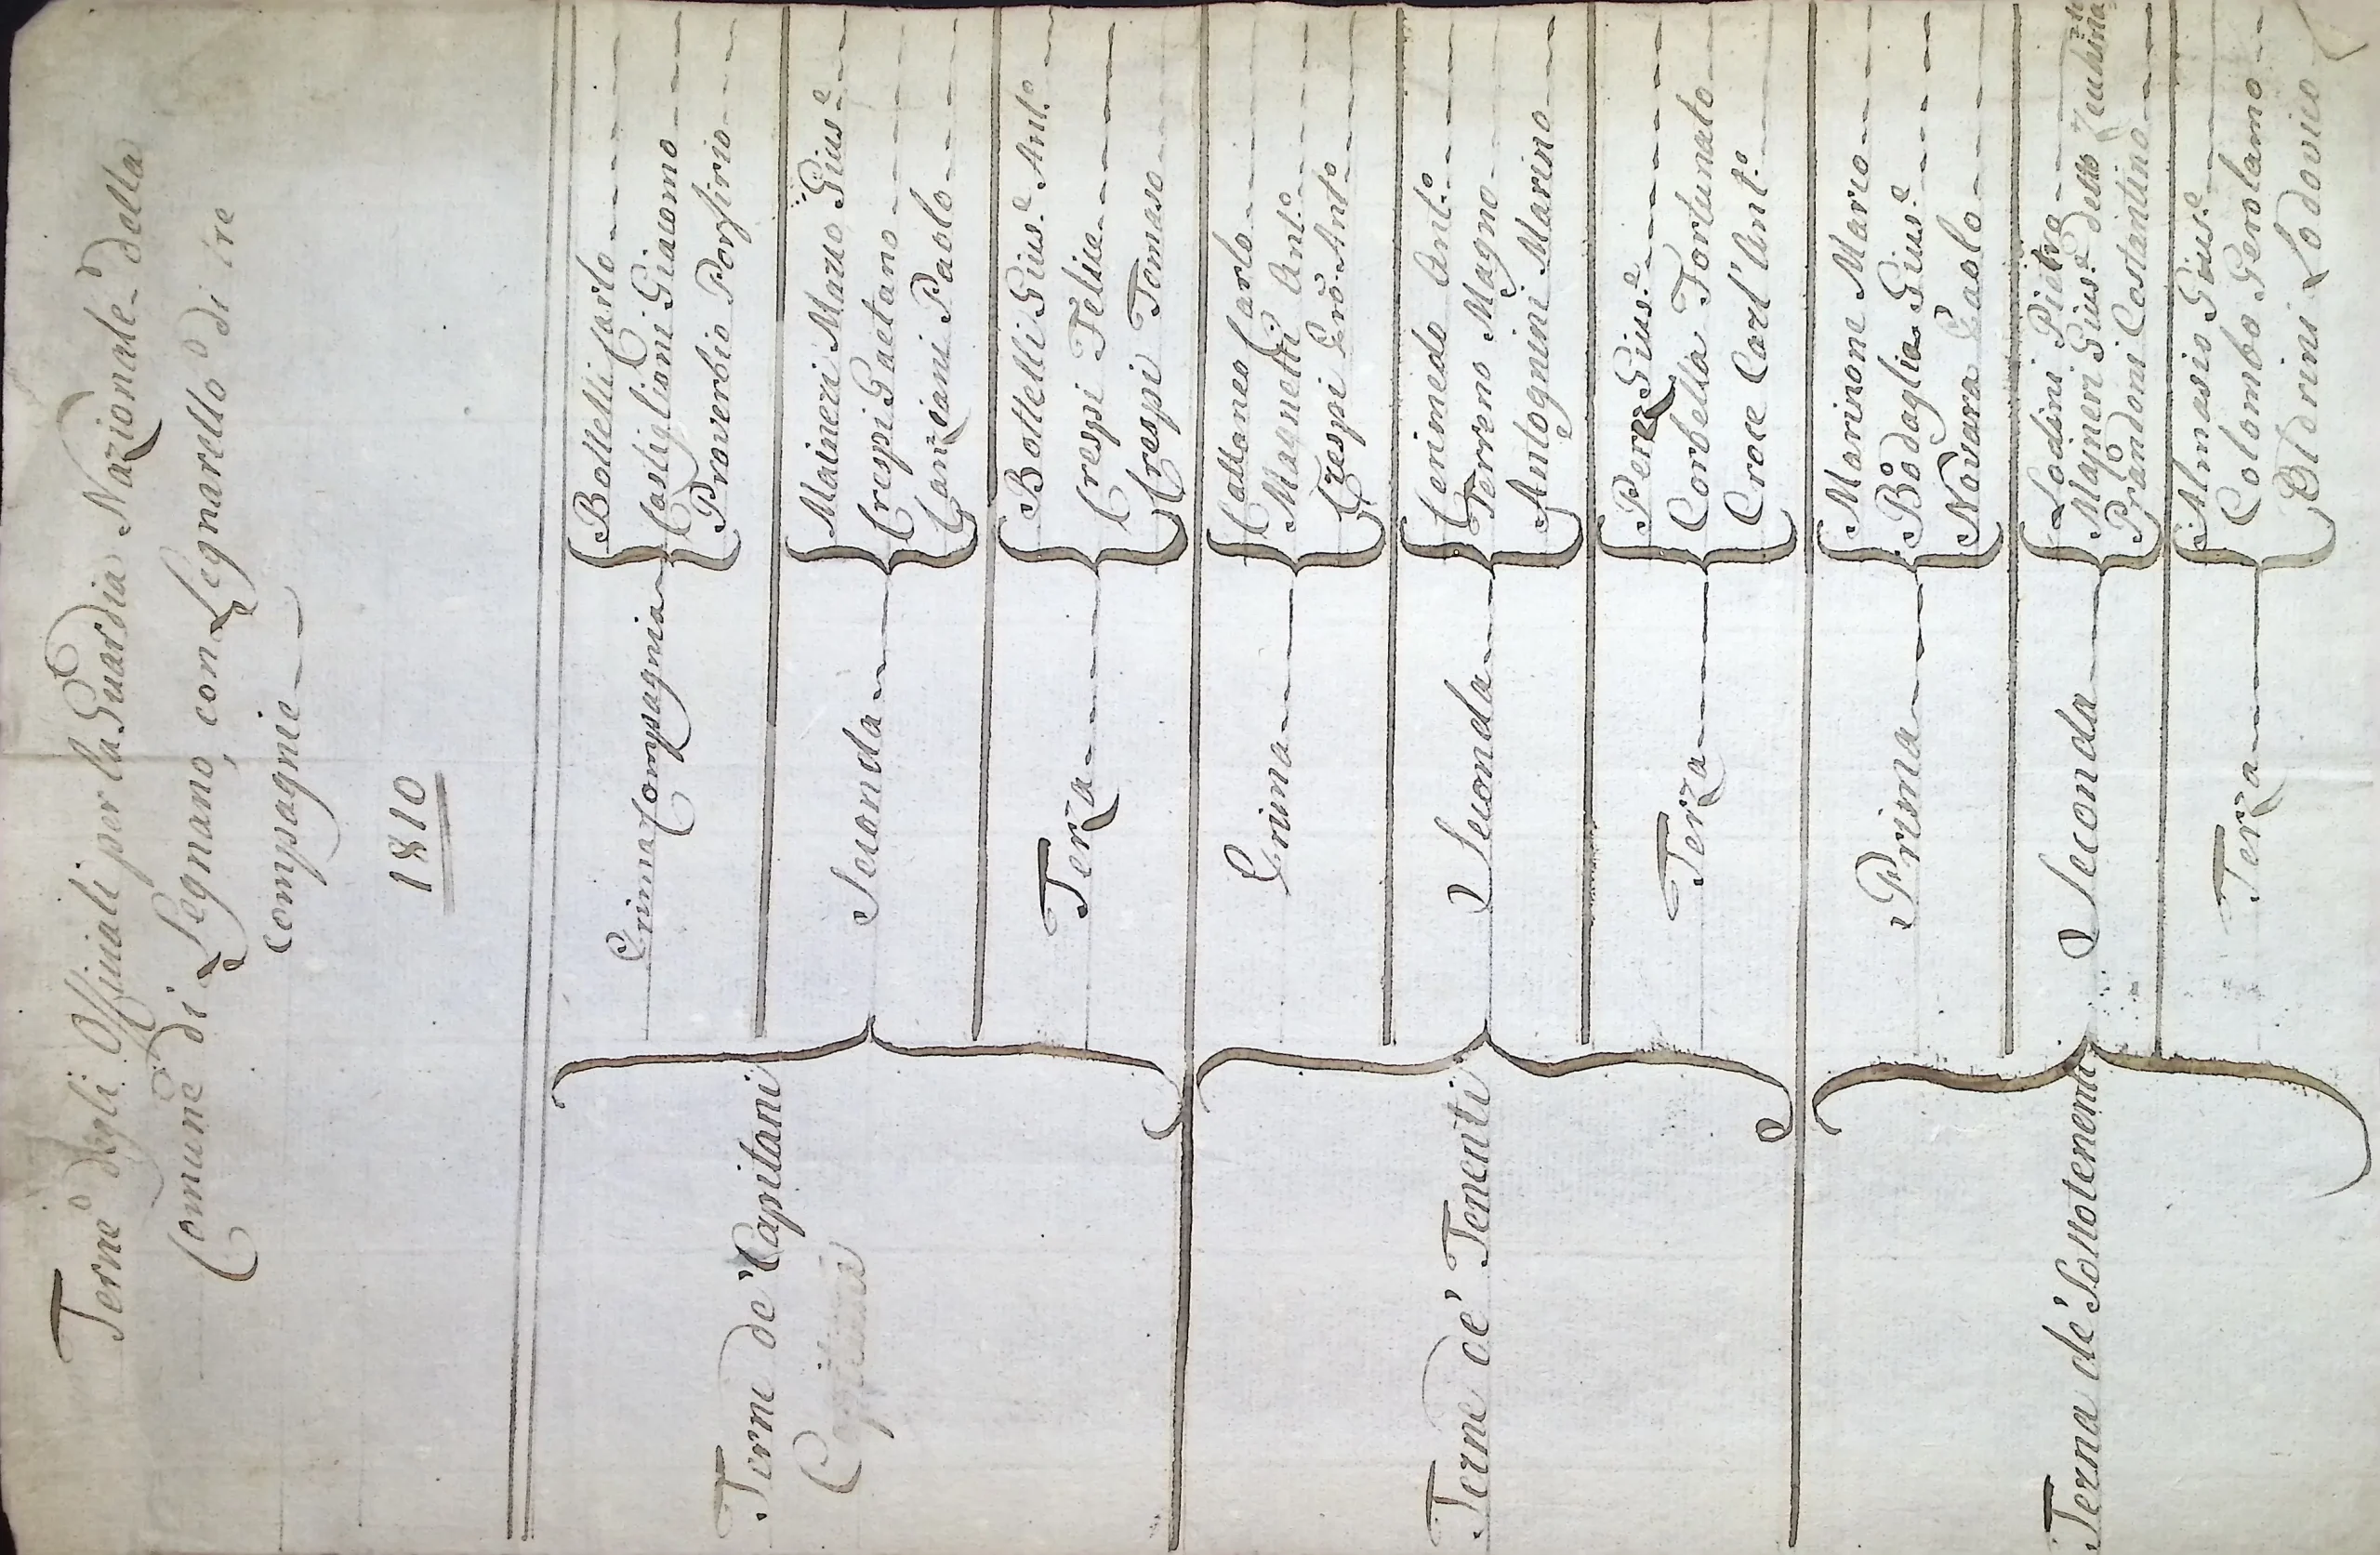 Terne degli Offiziali per la Guardia Nazionale della
Comune di Legnano, con Legnarello di tre
compagnie
1810
Terne de' Capitani
Capitani
Prima Compagnia
Bottelli Carlo
Castiglioni Giacomo
Proverbio Porfirio
Seconda
Maineri Marzo Gius.e
Crespi Gaetano
Canziani Paolo
Terza
Bottelli Gius.e Ant.o
Crespi Felice
Crespi Tomaso
Terne de' Tenenti
Prima
Cattaneo Carlo
Magnetti Ant.o
Crespi Gio. Ant.o
Seconda
Cerimedo Ant.o
Ferreno Magno
Antognini Marino
Terza
Perez Gius.e
Corbella Fortunato
Croce Carl'Ant.o
Terna de' Sottotenenti
Prima
Marinone Mario
Bodaglia Gius.e
Novara Paolo
Seconda
Lodini Pietro
Majneri Gius.e detto
Prandoni Costantino
Terza
Almasio Gius.e
Colombo Gerolamo
Oldrini Lodovico